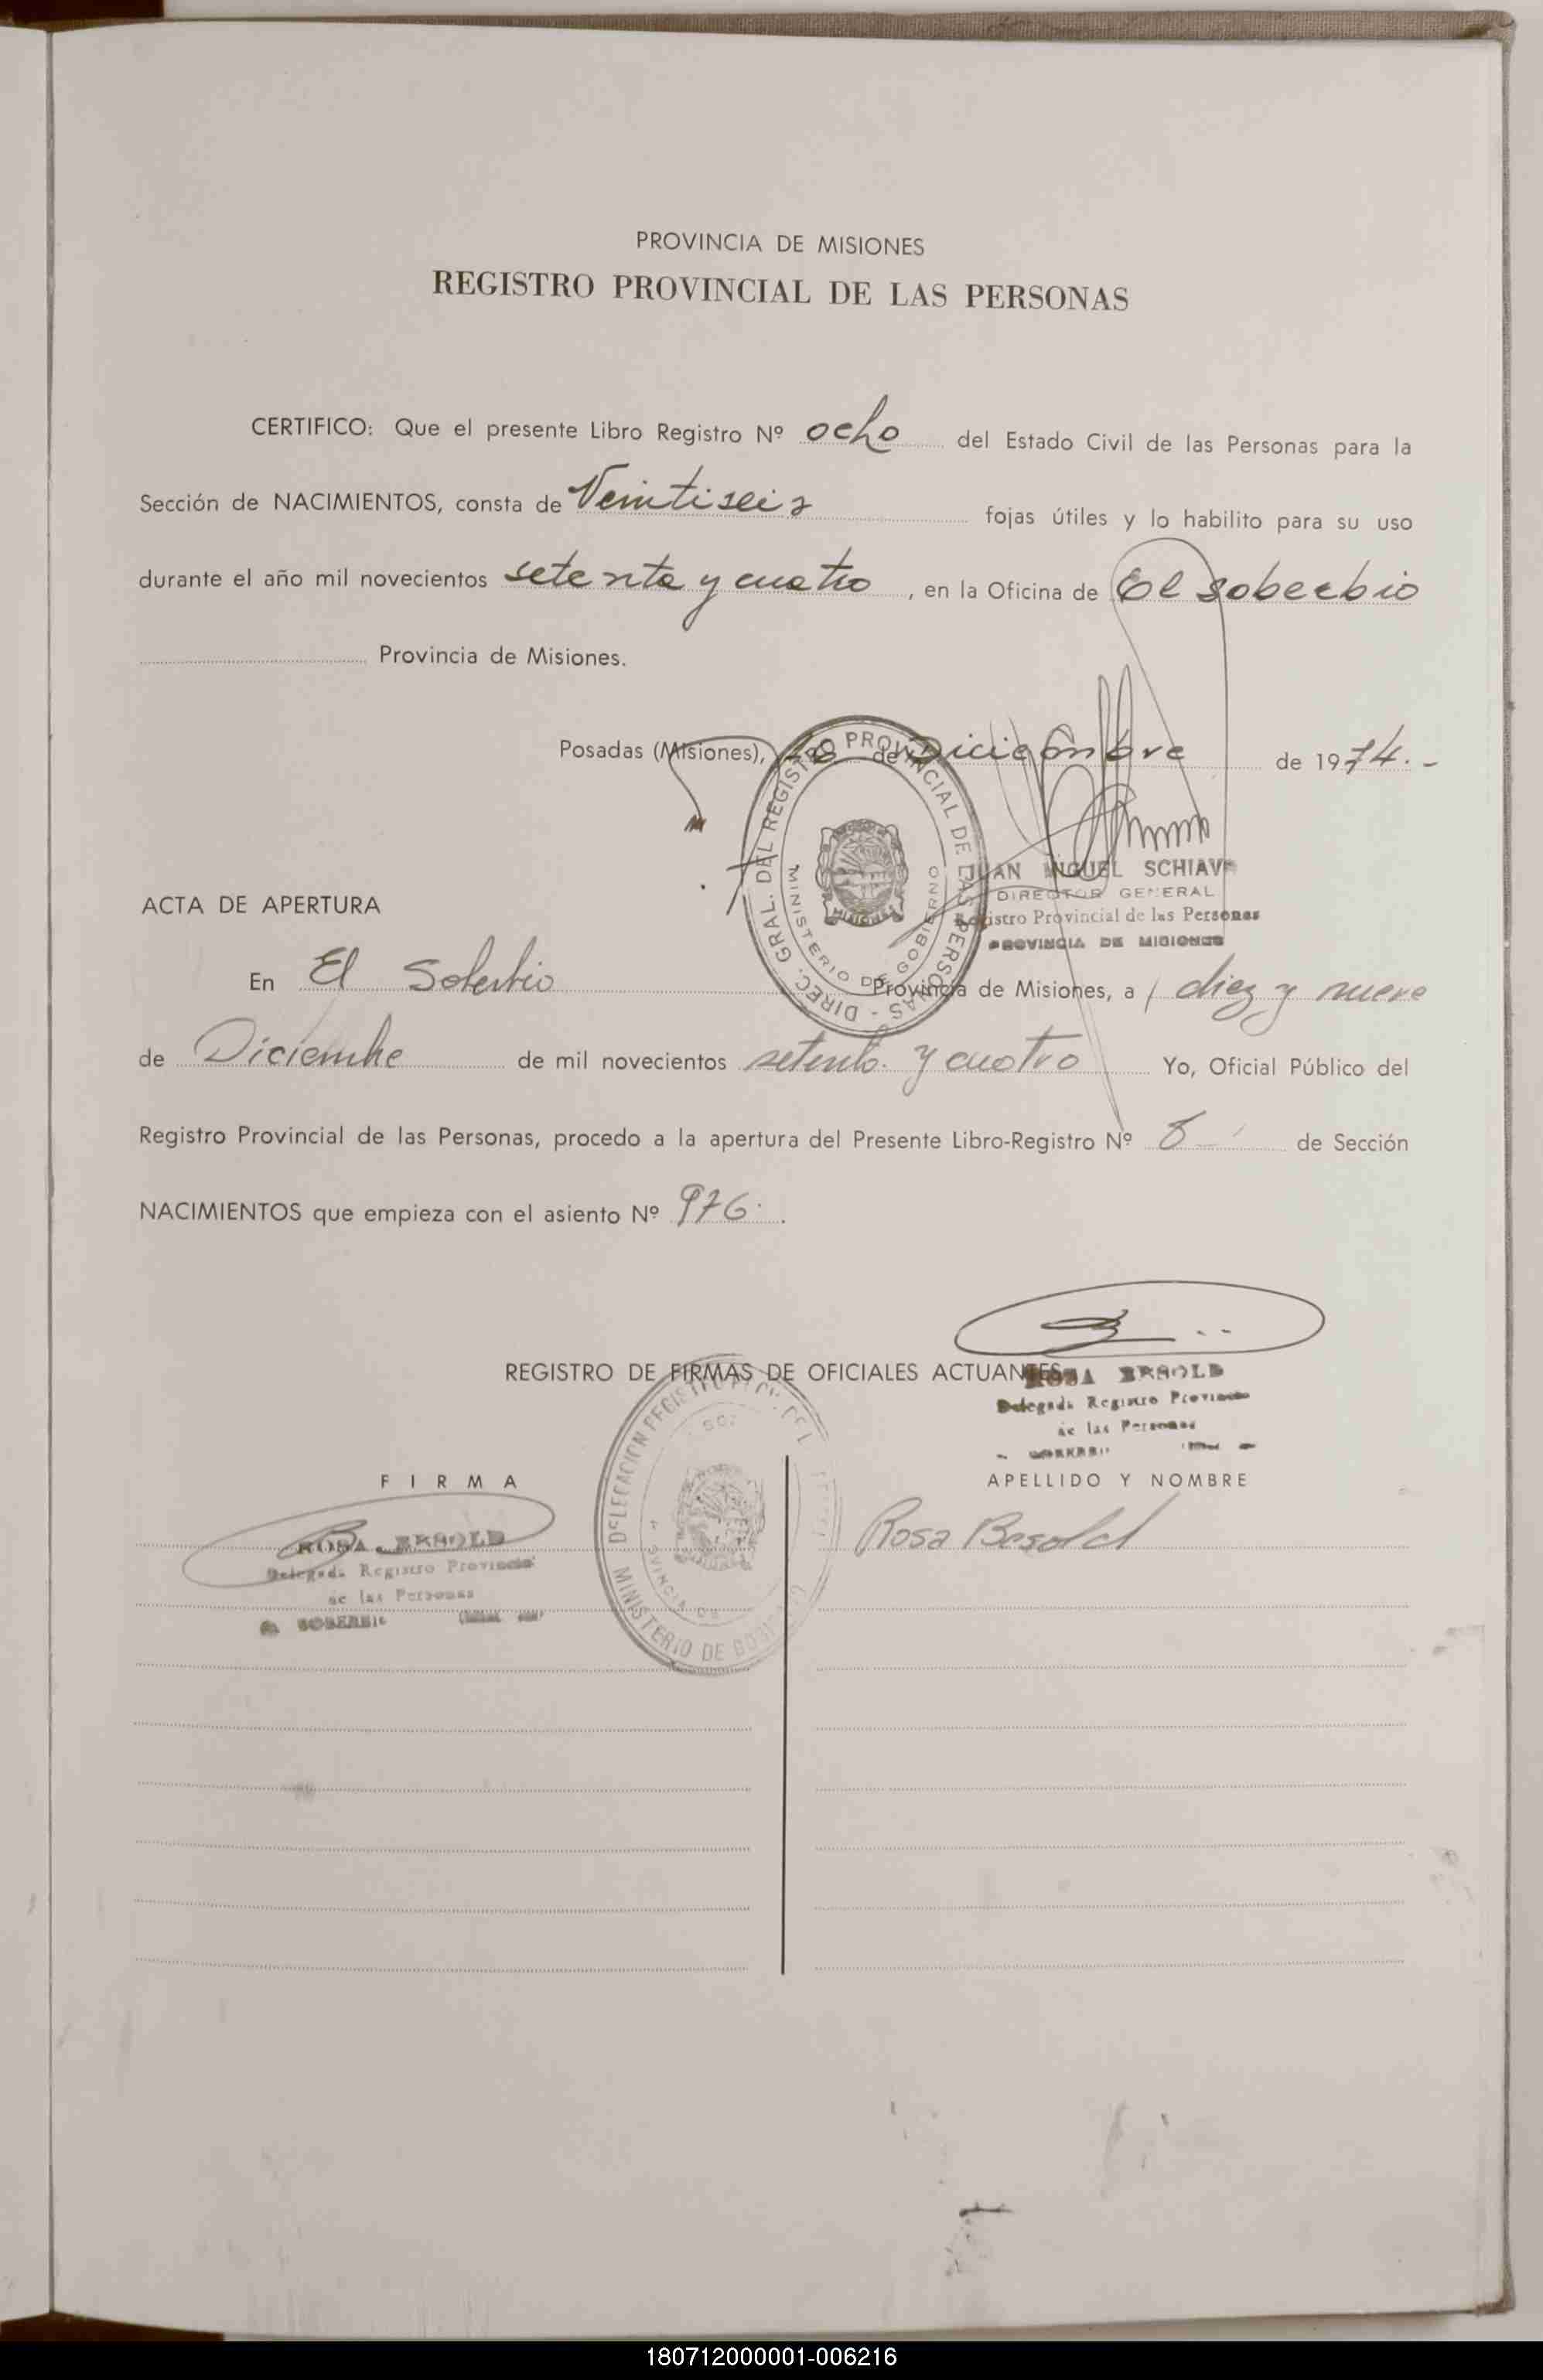 PROVINCIA DE MISIONES
REGISTRO PROVINCIAL DE LAS PERSONAS
CERTIFICO: Que el presente Libro Registro Nº ocho del Estado Civil de las Personas para la
Sección de NACIMIENTOS, consta de Veintiseis fojas útiles y lo habilito para su uso
durante el año mil novecientos setenta y cuatro, en la Oficina de El Soberbio
Provincia de Misiones.
Posadas (Misiones), de Diciembre de 1974.-
DIREC. GRAL. DEL REGISTRO PROVINCIAL DE LAS PERSONAS -
MINISTERIO DE GOBIERNO
MISIONES
JUAN MIGUEL SCHIAVO
DIRECTOR GENERAL
Registro Provincial de las Personas
PROVINCIA DE MISIONES
ACTA DE APERTURA
En El Soberbio Provincia de Misiones, a diez y nueve
de Diciembre de mil novecientos setenta y cuatro Yo, Oficial Público del
Registro Provincial de las Personas, procedo a la apertura del Presente Libro-Registro Nº 8 de Sección
NACIMIENTOS que empieza con el asiento Nº 976.
REGISTRO DE FIRMAS DE OFICIALES ACTUANTES
ROSA BESOLD
Delegada Registro Provincial
de las Personas
FIRMA
APELLIDO Y NOMBRE
ROSA BESOLD
Rosa Besold
Delegada Registro Provincial
de las Personas
SOBERBIO
DELEGACION REGISTRO
MINISTERIO DE
180712000001-006216